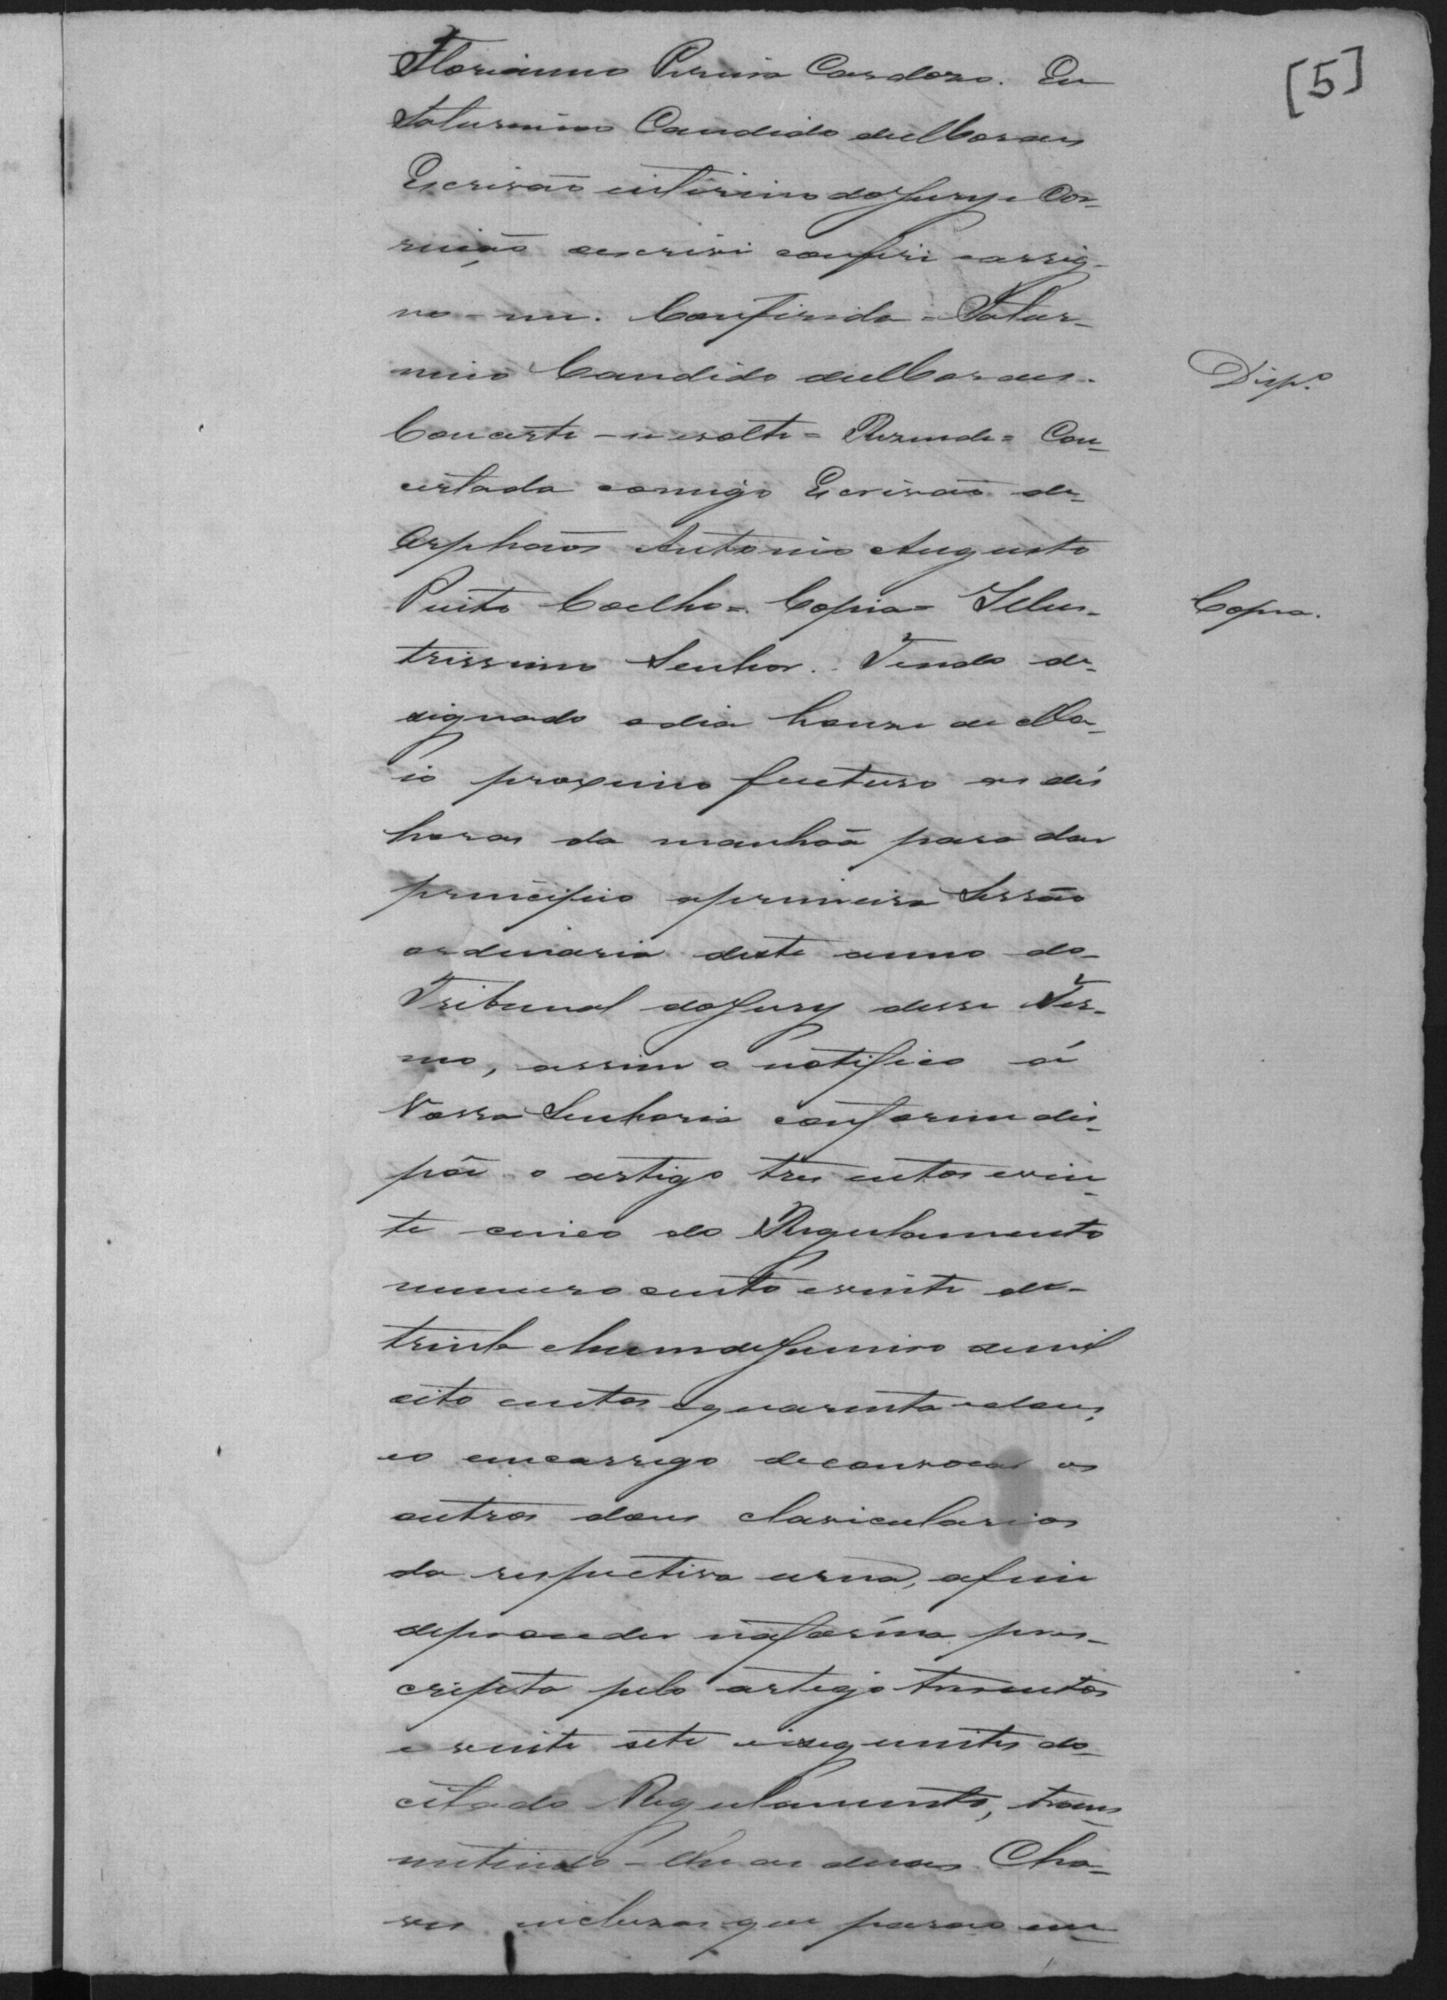 [5]
Florianno Pereira Cardozo. Eu
Saturnino Candido de Moraes
Escrivão interino do Jury e
escrevi conferi e assig-
no-me. Conferida = Satur-
nino Candido de Moraes.
Disp.º
Concerte-se e volte = Rezende = Con-
certada comigo Escrivão de
Orphãos Antonio Augusto
Pinto Coelho = Copia = Illus-
Copia.
trissimo Senhor. Tendo de-
signado o dia honze de Ma-
io proximo fucturo as dés
horas da manhaã para dar
principio a primeira Sessão
ordinaria deste anno do
Tribunal do Jury desse Ter-
mo, assim o notifico á
Vossa Senhoria conforme dis-
põe o artigo tres centos e vin-
te cinco do Regulamento
numero cento e vinte de
trinta e hum de Janeiro de mil
oito centos e quarenta e dous,
e o emcarrego de convocar os
outros dous clavicularios
da respectiva urna, afim
de proceder na fórma pres-
cripta pelo artigo tresentos
e vinte sete e seguintes do
citado Regulamento, trans-
mitindo-lhe as duas Cha-
ves incluzas que parão em